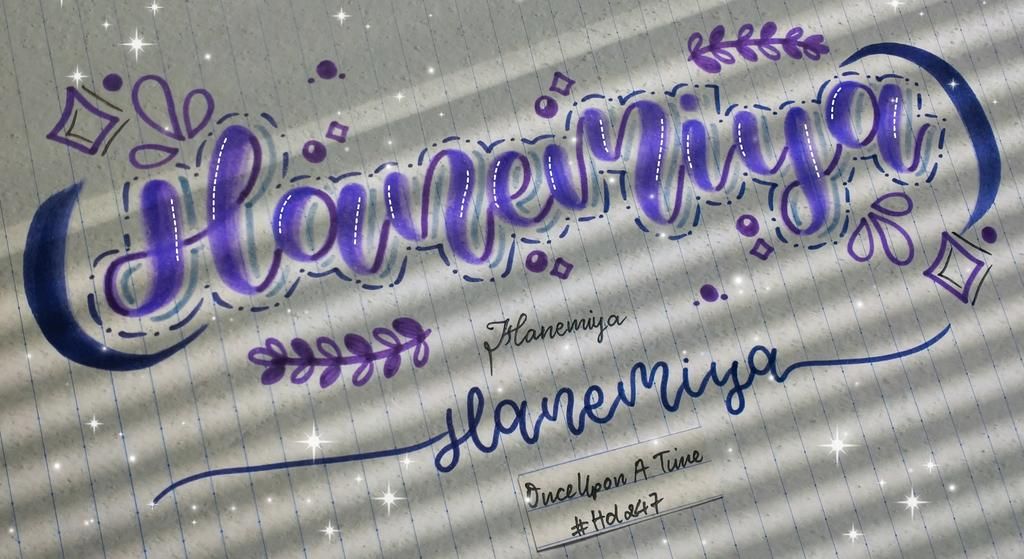 Hanemiya
Hanemiya
Hanemiya
Once Upon A Time
#Hola47